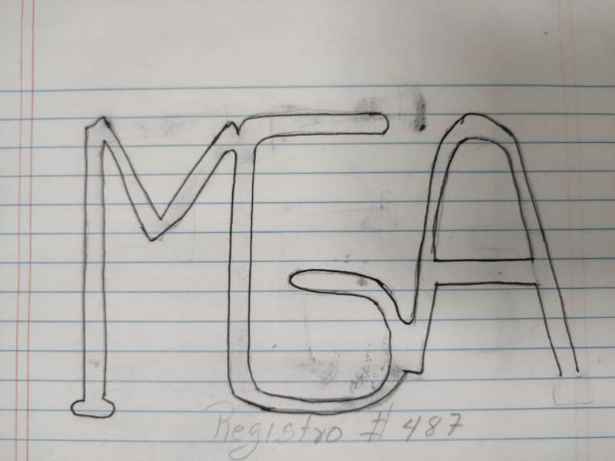 MGA
Registro # 487